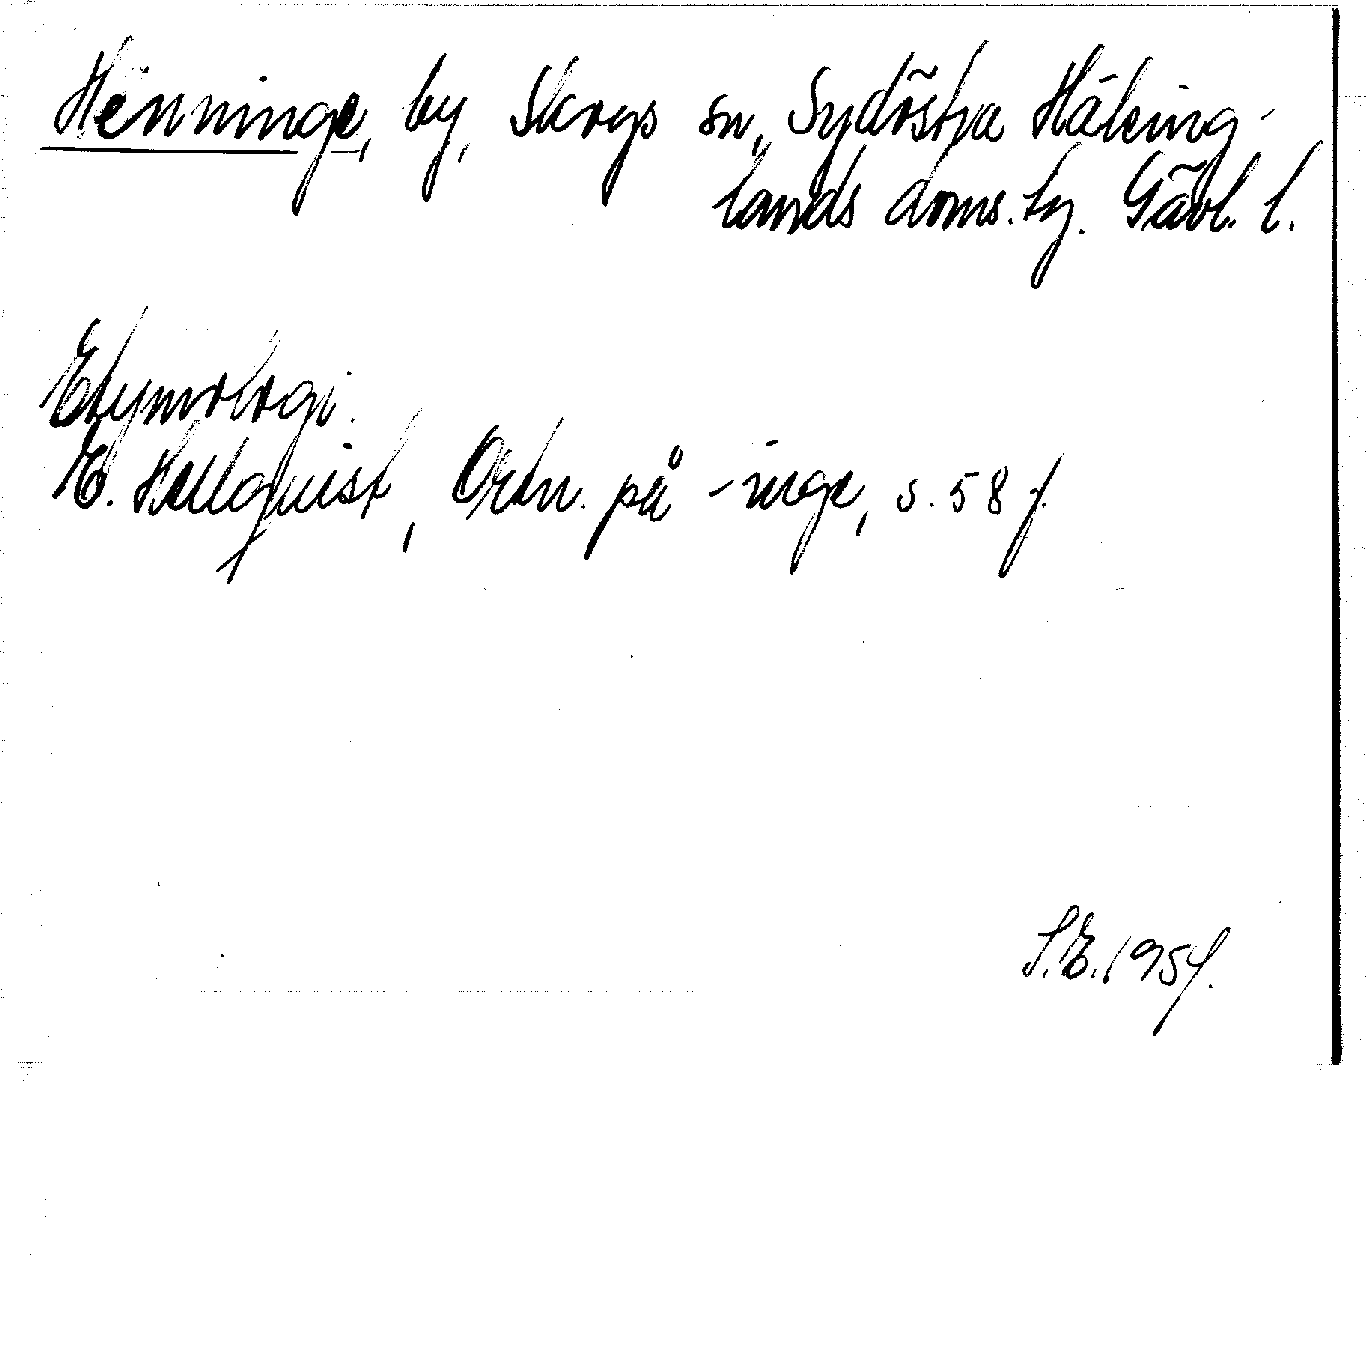 Hänninge, by, Skogs sn, Sydöstra Hälsing-
lands doms. hg. Gävl. l.
Etymologi.
E. Hellquist, Ortn. på -inge, s. 58 f.
S.E. 1954.